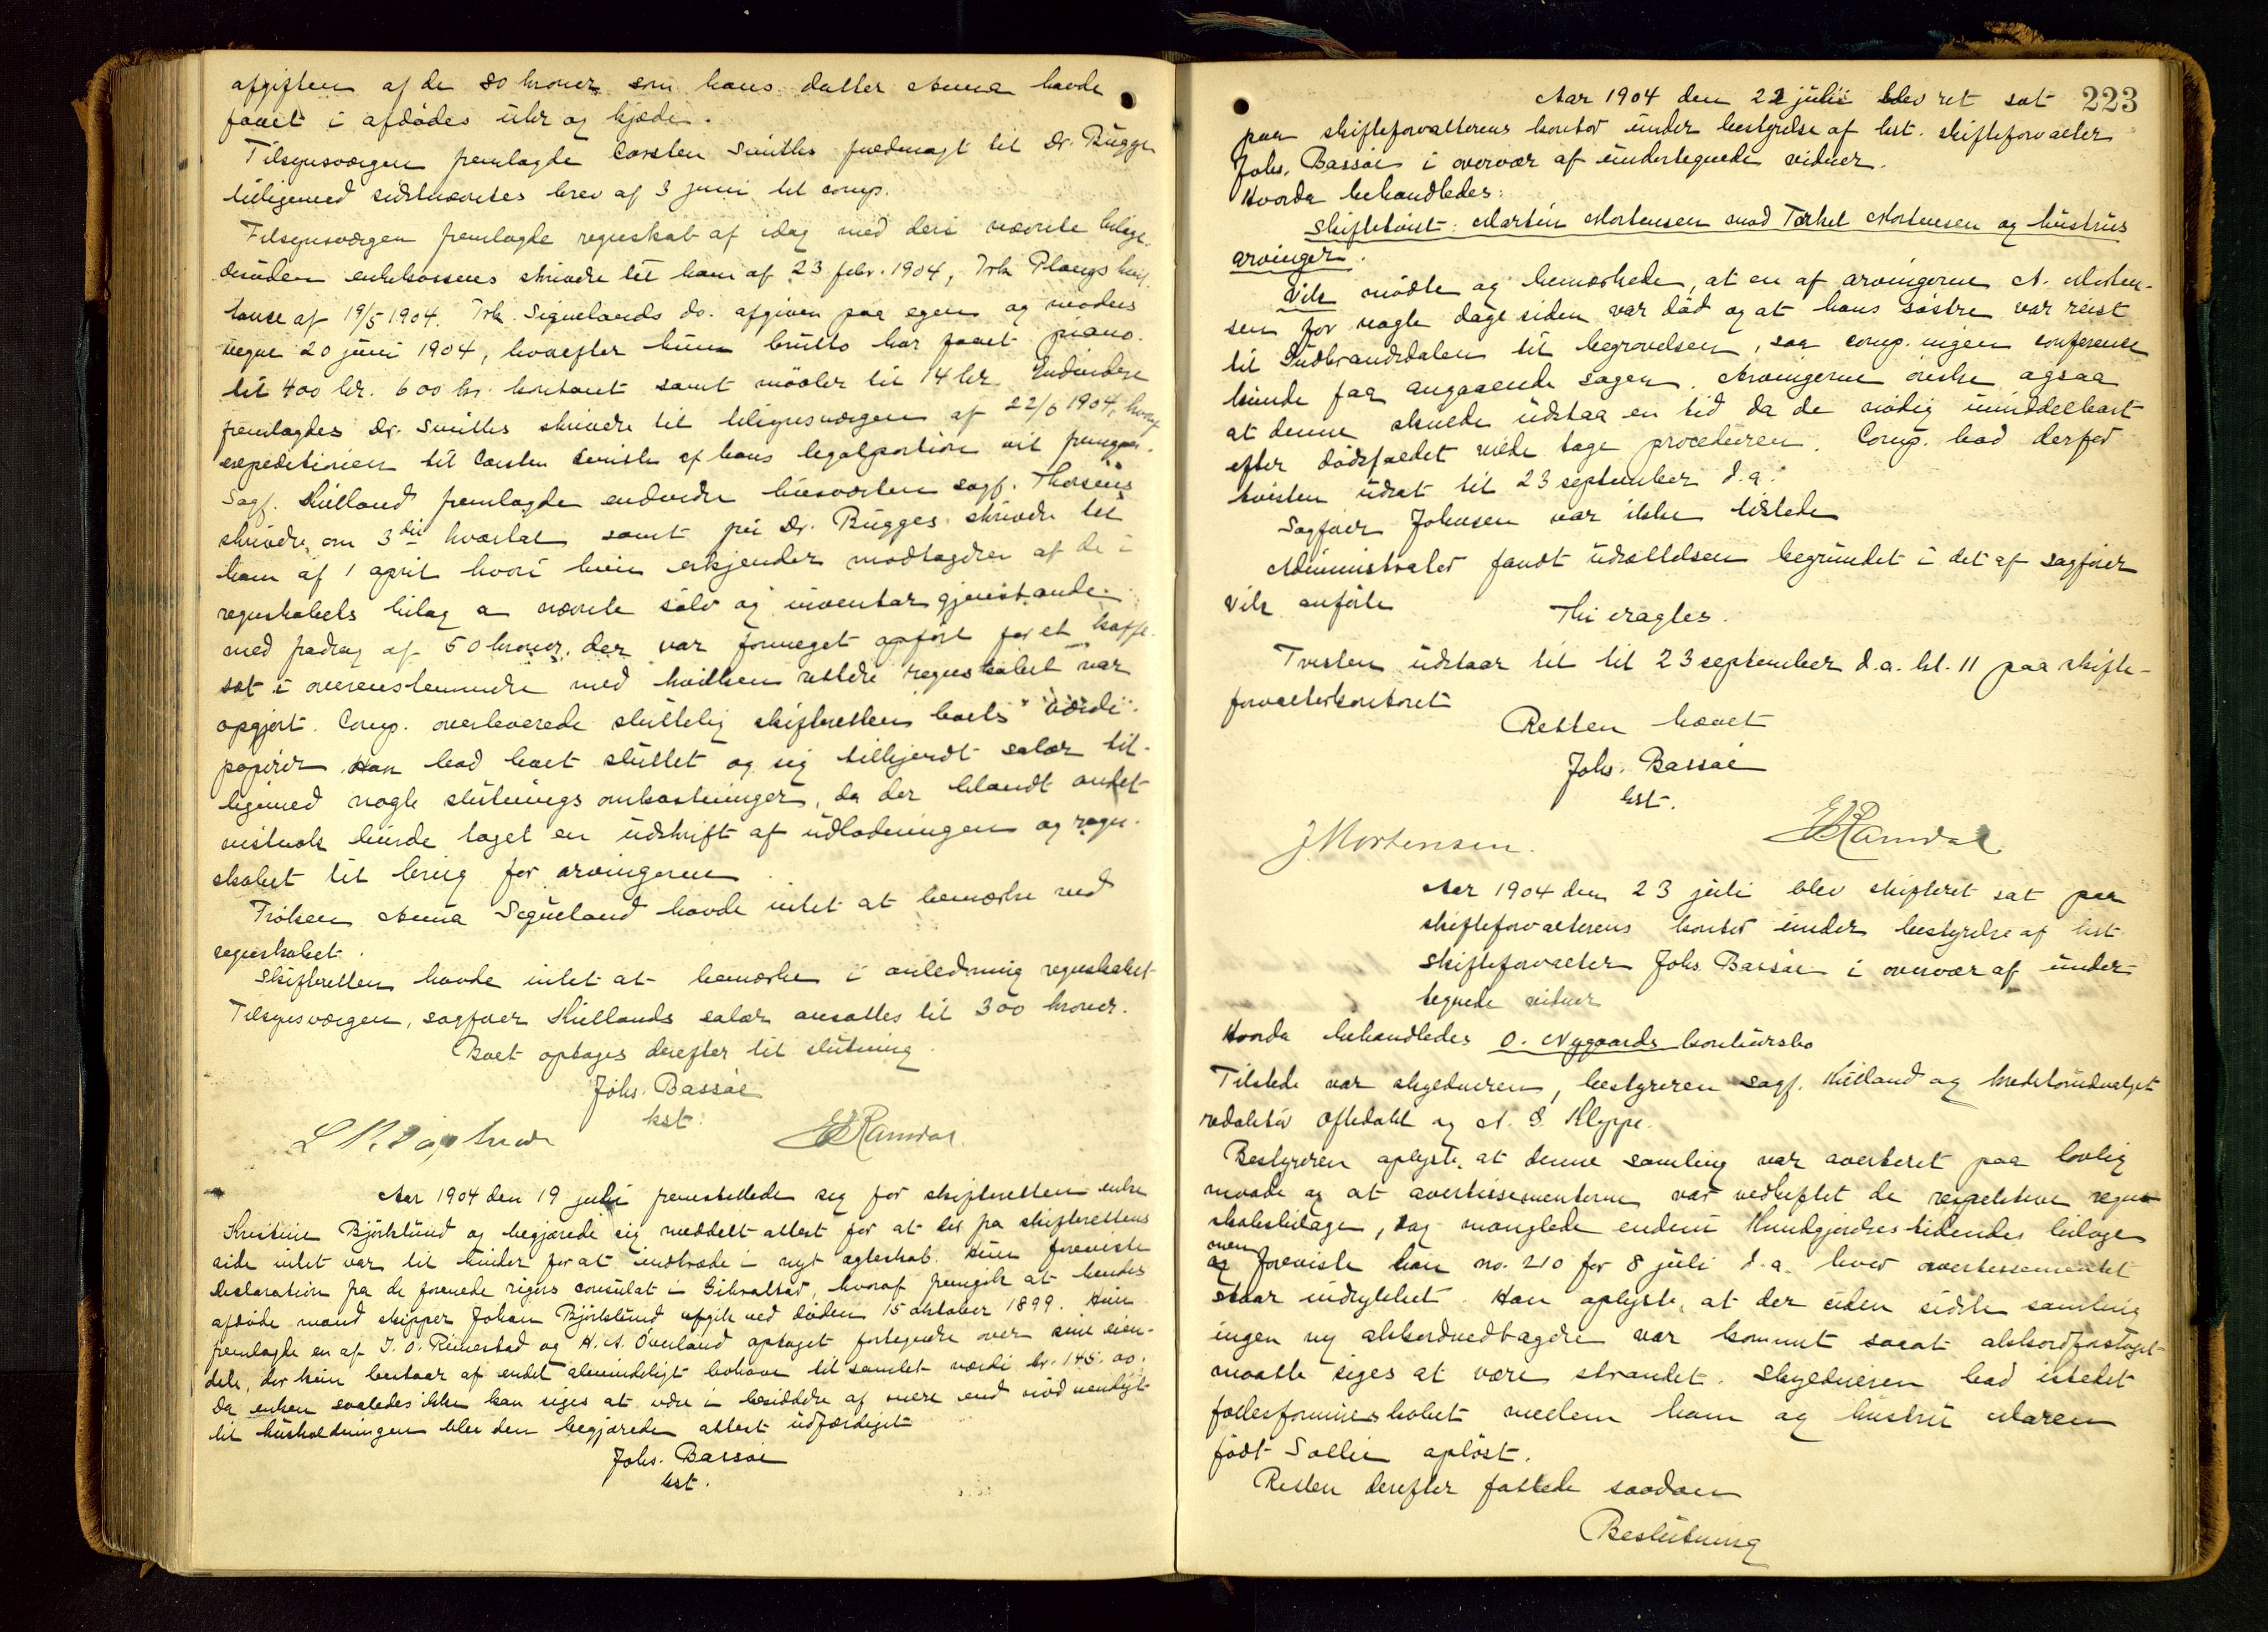 afgiften af de 80 kroner som hans datter Anna havde
faaet i afdødes uhr og kjæde.
Tilsynsværgen fremlagde Carsten Smiths fuldmagt til Dr. Bugge
tilligemed sidstnævntes brev af 3 juni til comp.
Tilsynsværgen fremlagde regnskab af idag med deri nævnte bilage
desuden enkekassens skrivelse til ham af 23 febr. 1904, Frk. Plougs
af 19/5 1904. Frk. Sigvelands do. afgiven paa egen og moders
vegne 20 juni 1904, hvorefter hun brutto har faaet piano
til 400 kr. 600 kr. kontant samt møbler til 14 kr. Endvidere
fremlagdes Dr. Smiths skrivelse til tilsynsværgen af 22/6 1904, hvoraf
expeditionen til Carsten Smith af hans legalportion vil fremgaa.
Sagf. Kielland fremlagde endvidere husværten sagf. Thorsens
skrivelse om 3die kvartal samt fru Dr. Bugges skrivelse til
ham af 1 april hvori hun erkjender modtagelsen af de i
regnskabets bilag a nævnte sølv og inventargjenstande
med fradrag af 50 kroner, der var formeget opført for et kaffe-
sæt i overensstemmelse med hvilken rettelse regnskabet var
opgjort. Comp. overleverede sluttelig skifteretten boets værdi-
papirer. Han bad boet sluttet og sig tilkjendt salær til-
ligemed nogle slutnings omkostninger, da der blandt andet
muligens burde taget en udskrift af udlodningen og regn-
skabet til brug for arvingerne
Frøken Anna Sigveland havde intet at bemærke ved
regnskabet.
Skifteretten havde intet at bemærke i anledning regnskabet
Tilsynsværgen, sagfører Kiellands salær ansattes til 300 kroner.
Boet optages derefter til slutning.
Johs. Bassøe
kst.
E Ramdal.
Aar 1904 den 19 juli fremstillede sig for skifteretten enke
Kristine Bjørklund og begjærede sig meddelt attest for at der fra skifterettens
side intet var til hinder for at indtræde i nyt ægteskab. Hun foreviste
deklaration fra de forenede rigers consulat i Gibraltar, hvoraf fremgik at hendes
afdøde mand skipper Johan Bjørklund afgik ved døden 15 oktober 1899. Hun
fremlagde en af J. O. Reinertsd og H. A. Øverland optaget fortegnelse over sine eien-
dele, der kun bestaar af endel almindeligt bohave til samlet værdi kr. 145.00.
Da enken saaledes ikke kan siges at være i besiddelse af mere end nødvendigt
til husholdningen blev den begjærede attest udfærdiget
Johs. Bassøe
kst.
223
Aar 1904 den 22 juli blev ret sat
paa skifteforvalterens kontor under bestyrelse af kst. skifteforvalter
Johs. Bassøe i overvær af undertegnede vidner.
Hvorda behandledes:
Skiftetvist: Martin Mortensen mod Torkel Mortensen og hustrus
arvinger.
Vik mødte og bemærkede, at en af arvingerne A. Morten-
sen for nogle dage siden var død og at hans søstre var reist
til Gudbrandsdalen til begravelsen, saa comp. ingen conference
kunde faa angaaende sagen. Arvingerne ønske ogsaa
at denne skulde udstaa en tid da de nødig umiddelbart
efter dødsfaldet vilde tage proceduren. Comp. bad derfor
tvisten udsat til 23 september d.a.
Sagfører Johnsen var ikke tilstede
Administrator fandt udsættelsen begrundet i det af sagfører
Vik anførte
Thi eragtes.
Tvisten udstaar til til 23 september d.a. kl. 11 paa skifte-
forvalterkontoret
Retten hævet
Johs. Bassøe
kst.
J. Mortensen.
E Ramdal.
Aar 1904 den 23 juli blev skifteret sat paa
skifteforvalterens kontor under bestyrelse af kst.
skifteforvalter Johs Bassøe i overvær af under-
tegnede vidner
Hvorda behandledes O. Nygaards konkursbo
Tilstede var skyldneren, bestyreren sagf. Kielland og kreditorudvalget
redaktør Oftedahl og A. S. Kleppe.
Bestyreren oplyste, at denne samling var averteret paa lovlig
maade og at avertissementerne var vedheftet de respektive regn-
skabsbilage, dog manglede endnu Kundgjørelsestidendes bilage
men
og foreviste han no. 210 for 8 juli d.a. hvor avertissementet
staar indrykket. Han oplyste, at der siden sidste samling
ingen ny akkordvedtagelse var kommet saaat akkordforslaget
maatte siges at være strandet. Skyldneren bad istedet
fællesformueskabet mellem ham og hustru Maren
født Sollie opløst.
Retten derefter fattede saadan
Beslutning